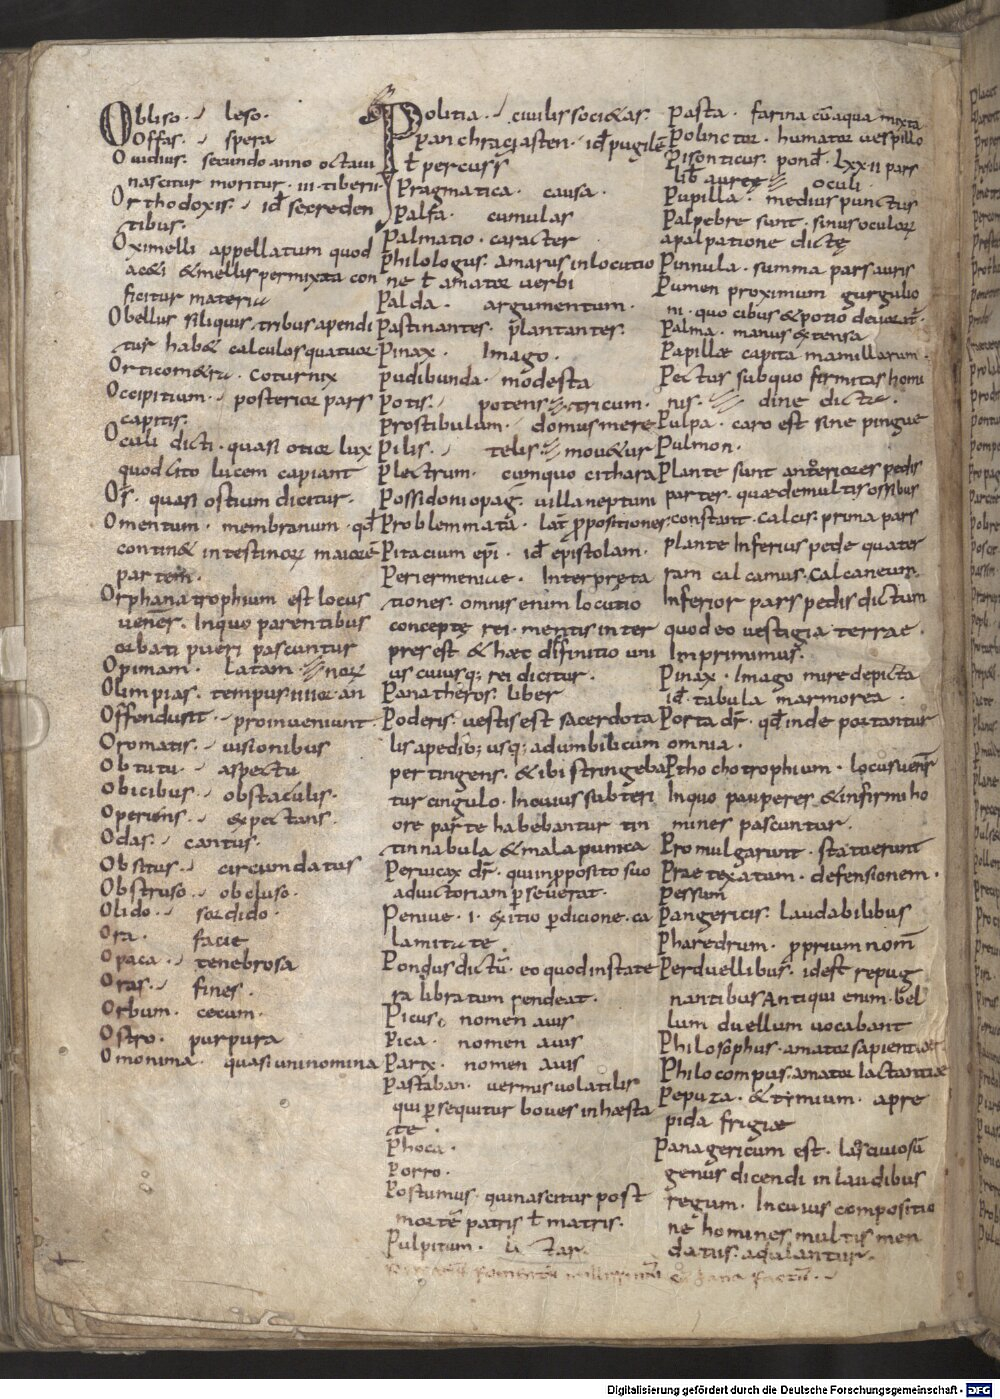 Obliso · leso ·
Offas · spera
Ovidius · secundo anno octavii
nascitur moritur · iii · tiberii
Orthodoxis · id ÷ se creden
tibus ·
Oximelli appellatum quod
aceti & mellis permixta con
ficitur materia
Obellus siliquis · tribus apendi
tur hab& calculos quatuor
Orticometra · coturnix
Occipitium · posterior pars
capitis ·
Oculi dicti · quasi otior lux
quod cito lucem capiant
Os · quasi ostium dicitur ·
Omentum · membranum · qd
contin& intestinorum maiorē
partem ·
Orphanatrophium est locus
vener · In quo parentibus
orbati pueri pascuntur
Opimam · Latam
Olimpias · tempus iiiior an norum
Offendunt · pro inveniunt ·
Oromatis · visionibus
Obtutu · aspectu
Obicibus · obstaculis ·
Operiens · expectans ·
Odas · cantus ·
Obsitus · circumdatus
Obstruso · obcluso ·
Olido · sordido ·
Ora · facie
Opaca · tenebrosa
Oras · fines ·
Orbum · cecum ·
Ostro · purpura
Omonima · quasi uninomina
Politia · civilis societas ·
pan chraciasten · id pugilē
ł percuss
Pragmatica · causa ·
Palfa · cumulas
Palmatio · caracter
Philologus · amarus in locutio
ne ł amator verbi
Palda · argumentum ·
Pastinantes · plantantes ·
Pinax · Imago ·
Pudibunda · modesta
Potis · potens
Prostibulum · domus mere tricum ·
Pilis · telis
Plectrum · cum quo cithara mov&ur
Possidoniopag · villa neptuni
Problemmata · Lat ppositiones
Pitacium epi · id epistolam ·
Periermeniae · Interpreta
tiones · omnis enim locutio
concepte rei · mentis inter
pres est & haec diffinitio uni
us cuiusq; rei dicitur ·
Panatheros · liber
Poderis · vestis est sacerdota
lis a pedib; usq; ad umbilicum
pertingens · & ibi stringeba
tur cingulo · In cuius subteri
ore parte habebantur tin
tinnabula & mala punica
Pervicax dr · qui in pposito suo
ad victoriam pseverat ·
Peniue · i · exitio pdicione · ca
lamitate
Pondus dictū · eo quod in state
ra libratum pendeat ·
Picus · nomen avis
Pica · nomen avis
Parix · nomen avis
Pastaban · vermis volatilis
qui psequitur boves in haesta
te ·
Phoca ·
Porro ·
Postumus · qui nascitur post
mortē patris ł matris ·
Pulpitum ·
Pasta · farina cū aqua mixta
Polinctor · humator vespillo
Pisonticus · pond · Lxxii pars
lib auree
Pupilla · medius punctus oculi
Palpebre sunt · sinus oculorum
a palpatione dicte
Pinnula · summa pars auris
Pumen proximum gurgulio
ni · quo cibus & potio devorat ·
Palma · manus extensa
Papillae capita mamillarum ·
Pectus sub quo firmitas homi
nis ·
Pulpa · caro est sine pingue dine dicta ·
Pulmon ·
Plante sunt anteriores pedis
partes · quae de multis ossibus
constant · calcis · prima pars
plante Inferius pede quater
ram calcamus · Calcaneum
Inferior pars pedis dictum
quod eo vestigia terrae ·
Imprimimus ·
Pinax · Imago mire depicta
id · tabula marmorea ·
Porta dr · qd inde portantur
omnia ·
Ptho chotrophium · locus vener
In quo pauperes & infirmi ho
mines pascuntur ·
Promulgarunt · statuerunt
Praetexatum · defensionem ·
Pessum
Pangericis · laudabilibus
Pharedrum · pprium nom
Perduellibus · id est repug
nantibus Antiqui enim · bel
lum duellum vocabant
Philosophus · amator sapientiae
Philocompus · amator lactantiae
Pepuza · & tymium · apre
pida frigiae
Panagericum est · lascivosū
genus dicendi in laudibus
regum · In cuius compositio
ne homines multis men
daciis · adulantur ·
Digitalisierung gefördert durch die Deutsche Forschungsgemeinschaft - DFG